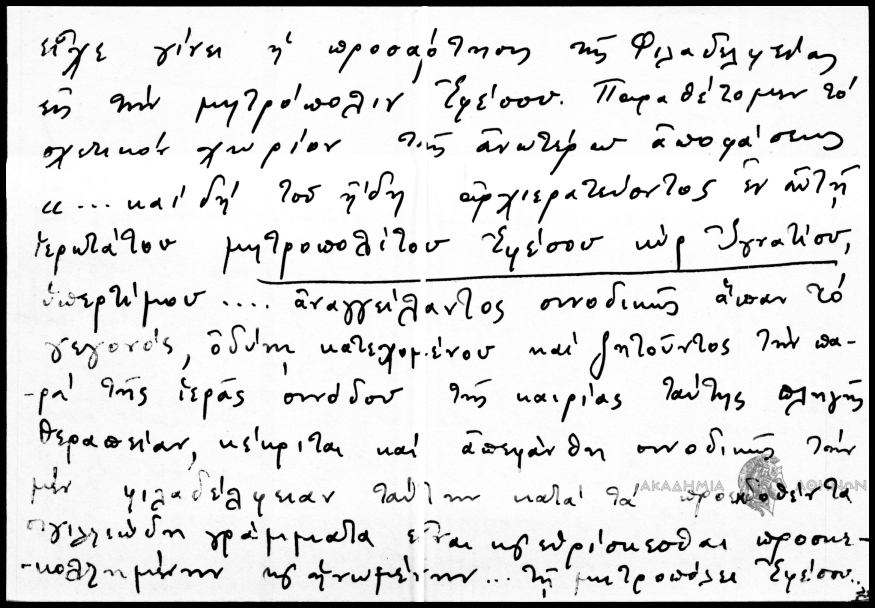 εἶχε γίνει ἡ προσάρτησις τῆς Φιλαδελφείας
εἰς τὴν μητρόπολιν Ἐφέσου. Παραθέτομεν τὸ
σχετικὸν χωρίον τῆς ἀνωτέρω ἀποφάσεως
«... καὶ δὴ τοῦ ἤδη ἀρχιερατεύοντος ἐν αὐτῇ
ἱερωτάτου μητροπολίτου Ἐφέσου κὺρ Ἰγνατίου,
ὑπερτίμου .... ἀναγγείλαντος συνοδικῶς ἅπαν τὸ
γεγονός, ὀδύνῃ κατεχομένου καὶ ζητοῦντος τὴν πα-
-ρὰ τῆς ἱερᾶς συνόδου τῆς καιρίας ταύτης πληγῆς
θεραπείαν, κέκριται καὶ ἀπεφάνθη συνοδικῶς τὴν
μὲν Φιλαδέλφειαν ταύτην κατὰ τὰ προεκδοθέντα
σιγιλλιώδη γράμματα εἶναι κ' εὑρίσκεσθαι προσκε-
-κολλημένην κ' ἡνωμένην... τῇ μητροπόλει Ἐφέσου..
ΑΚΑΔΗΜΙΑ ΑΘΗΝΩΝ